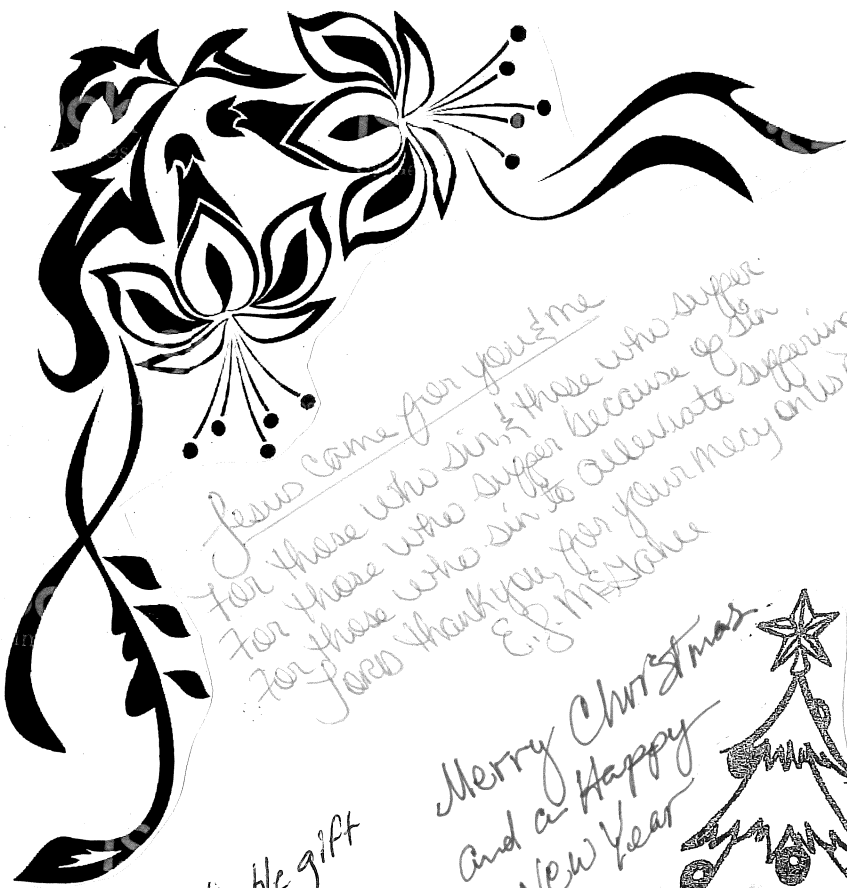 Jesus came for you & me
For those who sin, & those who suffer
For those who suffer because of Sin
For those who sin to alleviate suffering
Lord thank you, for your mecy on us
E.J. McGahee
Merry Christmas
and a Happy
New Year
gift